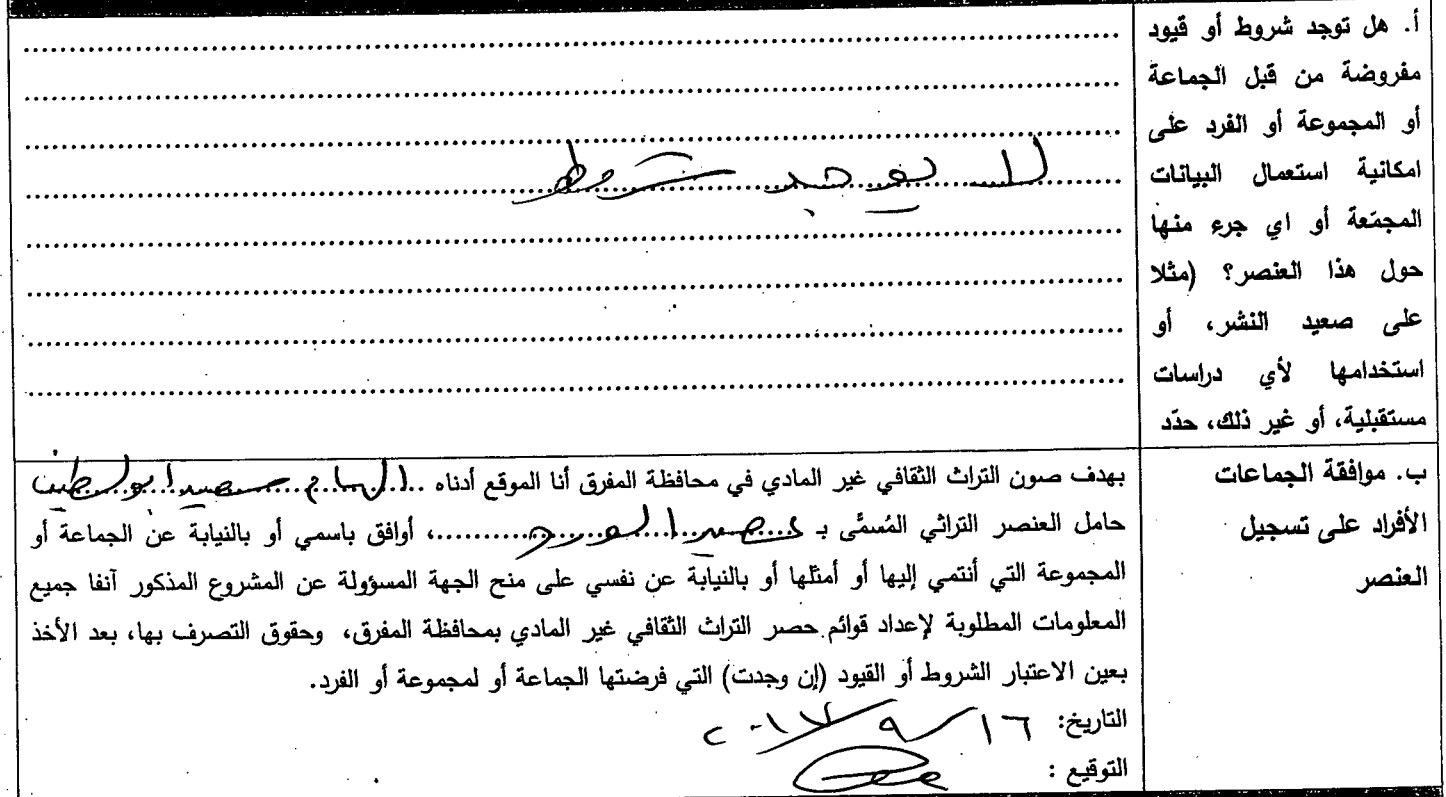 أ. هل توجد شروط أو قيود
مفروضة من قبل الجماعة
أو المجموعة أو الفرد على
امكانية استعمال البيانات
المجمّعة أو اي جرء منها
حول هذا العنصر؟ (مثلا
على صعيد النشر، أو
استخدامها لأي دراسات
مستقبلية، أو غير ذلك، حدّد
لا يوجد شروط
ب. موافقة الجماعات
الأفراد على تسجيل
العنصر
بهدف صون التراث الثقافي غير المادي في محافظة المفرق أنا الموقع أدناه
حامل العنصر التراثي المُسمَّى بـ ، أوافق باسمي أو بالنيابة عن الجماعة أو
المجموعة التي أنتمي إليها أو أمثلها أو بالنيابة عن نفسي على منح الجهة المسؤولة عن المشروع المذكور آنفا جميع
المعلومات المطلوبة لإعداد قوائم حصر التراث الثقافي غير المادي بمحافظة المفرق، وحقوق التصرف بها، بعد الأخذ
بعين الاعتبار الشروط أو القيود (إن وجدت) التي فرضتها الجماعة أو لمجموعة أو الفرد.
التاريخ: ١٦/٩/٢٠١٧
التوقيع :